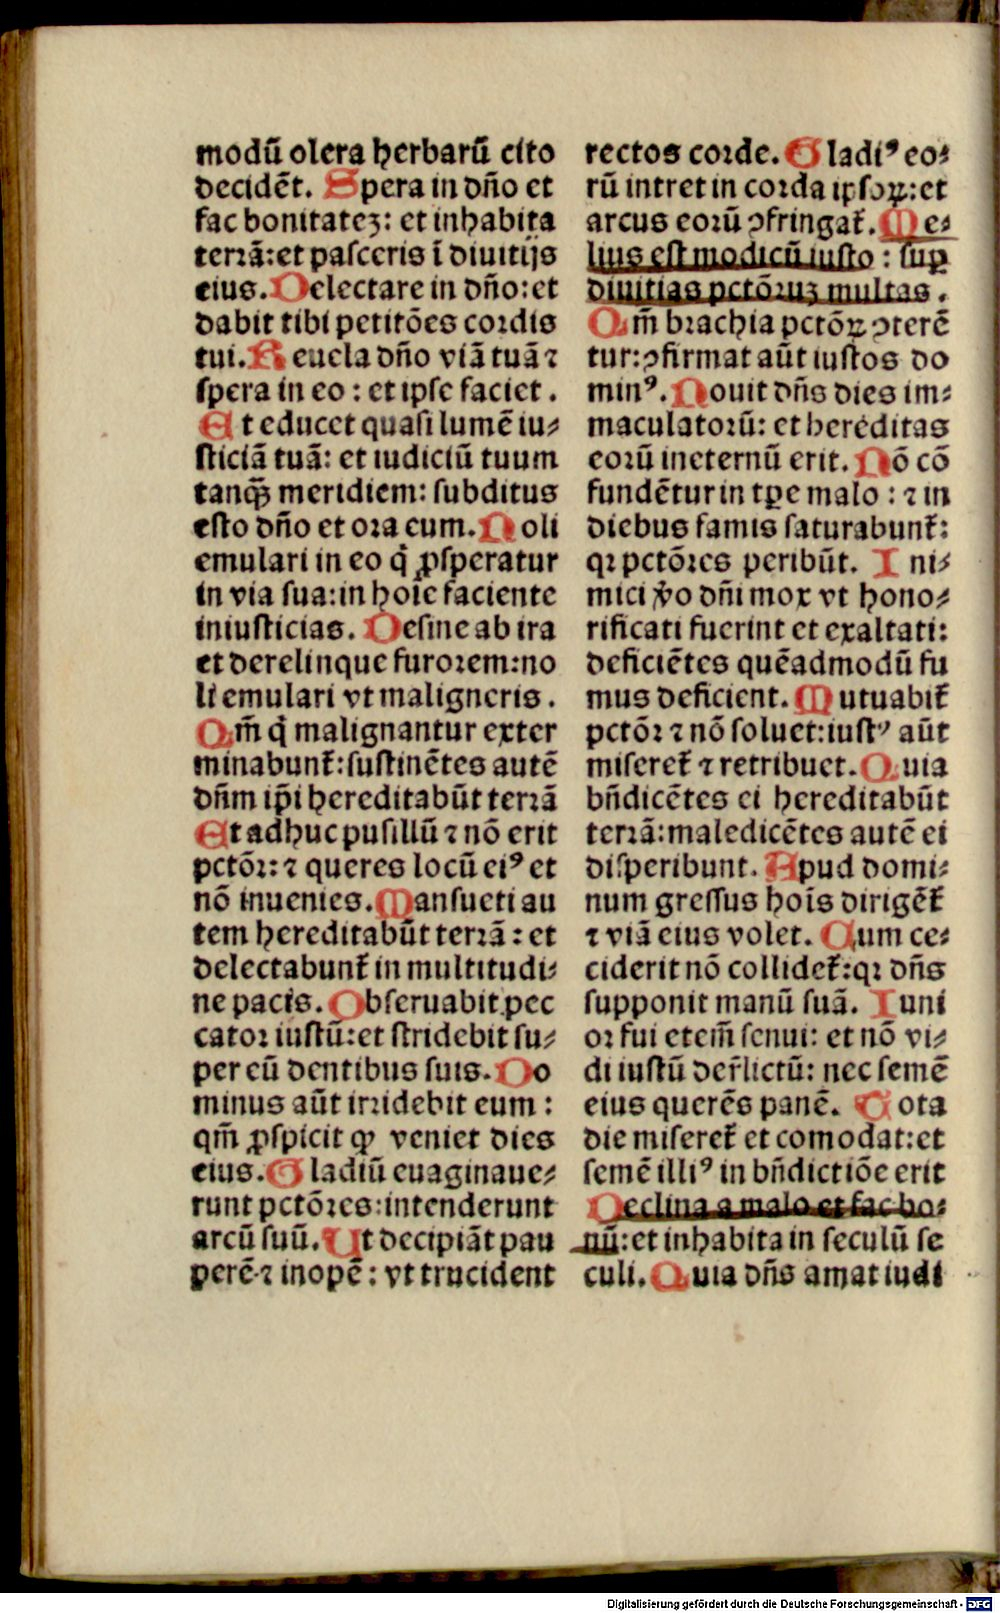 modū olera herbarū cito
decidēt. Spera in dn̄o et
fac bonitateꝫ: et inhabita
terrā: et pasceris ī diuitijs
eius. Delectare in dn̄o: et
dabit tibi petitōes cordis
tui. Reuela dn̄o viā tuā ⁊
spera in eo : et ipse faciet .
Et educet quasi lumē iu⸗
sticiā tuā: et iudiciū tuum
tanqꝫ meridiem: subditus
esto dn̄o et ora eum. Noli
emulari in eo q̇ ꝓsperatur
in via sua: in hoīe faciente
iniusticias. Desine ab ira
et derelinque furorem: no
li emulari vt maligneris .
Qm̄ q̇ malignantur exter
minabunt᷑: sustinētes autē
dn̄m ip̄i hereditabūt terrā
Et adhuc pusillū ⁊ nō erit
pctōr: ⁊ queres locū eiꝰ et
nō inuenies. Mansueti au
tem hereditabūt terrā : et
delectabunt᷑ in multitudi⸗
ne pacis. Obseruabit pec
cator iustū: et stridebit su⸗
per eū dentibus suis. Do
minus aūt irridebit eum :
qm̄ ꝓspicit ꝙ veniet dies
eius. Gladiū euaginaue⸗
runt pctōres: intenderunt
arcū suū. Ut decipiāt pau
perē ⁊ inopē : vt trucident
rectos corde. Gladiꝰ eo⸗
rū intret in corda ipsoꝝ: et
arcus eorū ꝯfringat᷑. Me⸗
lius est modicū iusto : suꝑ
diuitias pctōruꝫ multas .
Qm̄ brachia pctōꝝ ꝯterē
tur: ꝯfirmat aūt iustos do
minꝰ. Nouit dn̄s dies im⸗
maculatorū: et hereditas
eorū ineternū erit. Nō cō
fundētur in tꝑe malo : ⁊ in
diebus famis saturabunt᷑:
qꝛ pctōres peribūt. Ini⸗
mici v̊o dn̄i mox vt hono⸗
rificati fuerint et exaltati:
deficiētes quēadmodū fu
mus deficient. Mutuabit᷑
pctōr ⁊ nō soluet: iustꝰ aūt
miseret᷑ ⁊ retribuet. Quia
bn̄dicētes ei hereditabūt
terrā: maledicētes autē ei
disperibunt. Apud domi⸗
num gressus hoīs dirigēt᷑
⁊ viā eius volet. Cum ce⸗
ciderit nō collidet᷑: qꝛ dn̄s
supponit manū suā. Iuni
or fui etem̄ senui: et nō vi⸗
di iustū der̄lictū: nec semē
eius querēs panē. Tota
die miseret᷑ et comodat: et
semē illiꝰ in bn̄dictiōe erit
Declina a malo et fac bo⸗
nū: et inhabita in seculū se
culi. Quia dn̄s amat iudi
Digitalisierung gefördert durch die Deutsche Forschungsgemeinschaft - DFG